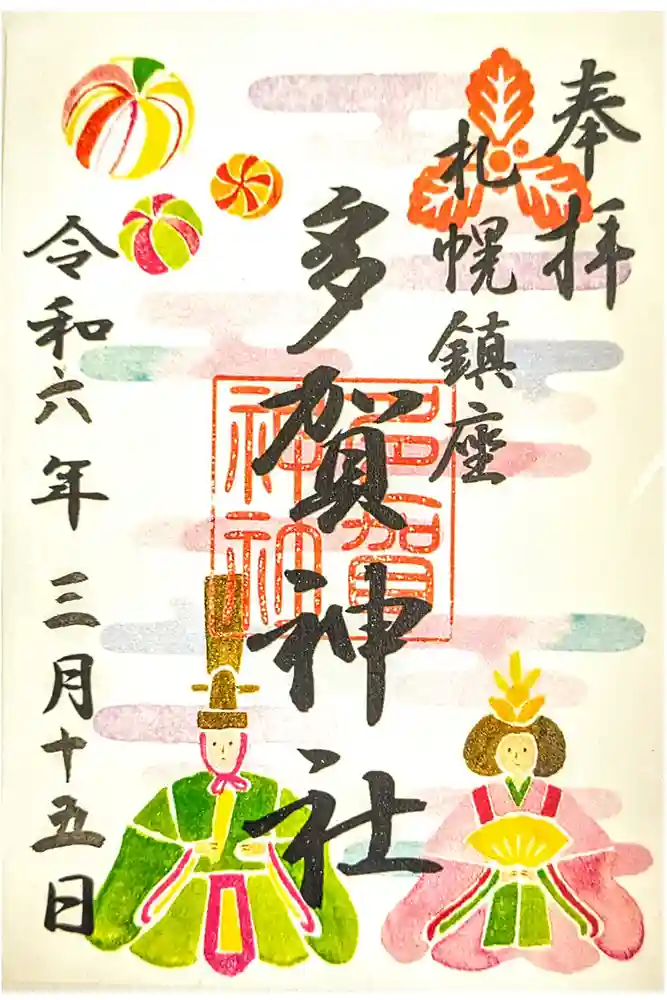 奉拝
札幌鎮座
多賀神社
多賀
神社
令和六年三月十五日